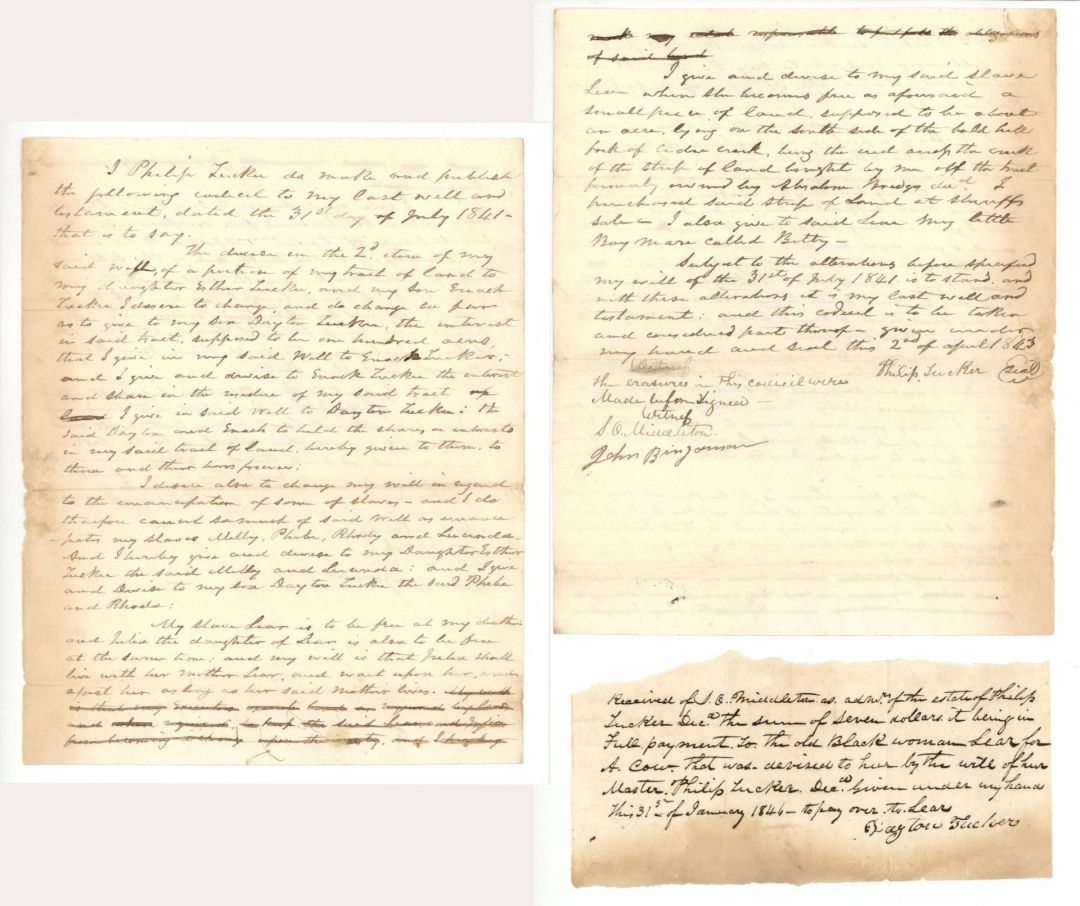 I Philip Tucker do make and publish
the following codicil to my last will and
testament, dated the 31st day of July 1841 -
that is to say.
The devise in the 2d. item of my
said will, of a portion of my tract of land to
my daughter Esther Tucker, and my son Enoch
Tucker, I desire to change, and do change so far
as to give to my son Dayton Tucker, the interest
in said tract, supposed to be one hundred acres,
that I give in my said will to Enoch Tucker;
and I give and devise to Enoch Tucker the interest
and share in the residue of my said tract of
land I give in said will to Dayton Tucker: the
said Dayton and Enoch to hold the shares or interests
in my said tract of land, hereby given to them, to
them and their heirs forever;
I desire also to change my will in regard
to the emancipation of some of slaves - and I do
therefore cancel so much of said will as emanci-
-pates my slaves Milly, Phebe, Rhody and Lucinda -
And I hereby give and devise to my Daughter Esther
Tucker the said Milly and Lucinda: and I give
and Devise to my son Dayton Tucker the said Phebe
and Rhoda:
My slave Lear is to be free at my death
and Julia the daughter of Lear is also to be free
at the same time; and my will is that Julia shall
live with her mother Lear, and wait upon her, and
assist her as long as her said mother lives. My will
is that my Executor execute bond as required by law
and when required to keep the said Lear and
from becoming a charge upon the county, and I hereby
make my estate responsible to fulfill the obligations
of said bond
I give and devise to my said slave
Lear when she becomes free as aforesaid a
small piece of land, supposed to be about
an acre, lying on the south side of the bald hill
fork of Cedar creek, being the end across the creek
of the strip of land bought by me off the tract
formerly owned by Absalom Bridges decd. I
purchased said strip of Land at Sheriffs
sale - I also give to said Lear My little
Bay mare called Betty -
Subject to the alterations before specified
my will of the 31st of July 1841 is to stand, and
with these alterations it is my last will and
testament: and this codicil is to be taken
and considered part thereof - given under
my hand and seal this 2nd of april 1843
Witness
Philip Tucker (seal)
the erasures in this codicil were
Made before Signed -
Witness
S. O. Middleton
John Bingaman
Received of S. O. Middleton as. admr. of the estate of Philip
Tucker Decd. the sum of Seven dollars it being in
Full payment. To. the old Black woman Lear for
A. Cow. that was devised to her by the will of her
Master. Philip Tucker. Decd. Given under my hand
this 31st of January 1846 - to pay over. to. Lear
Dayton Tucker